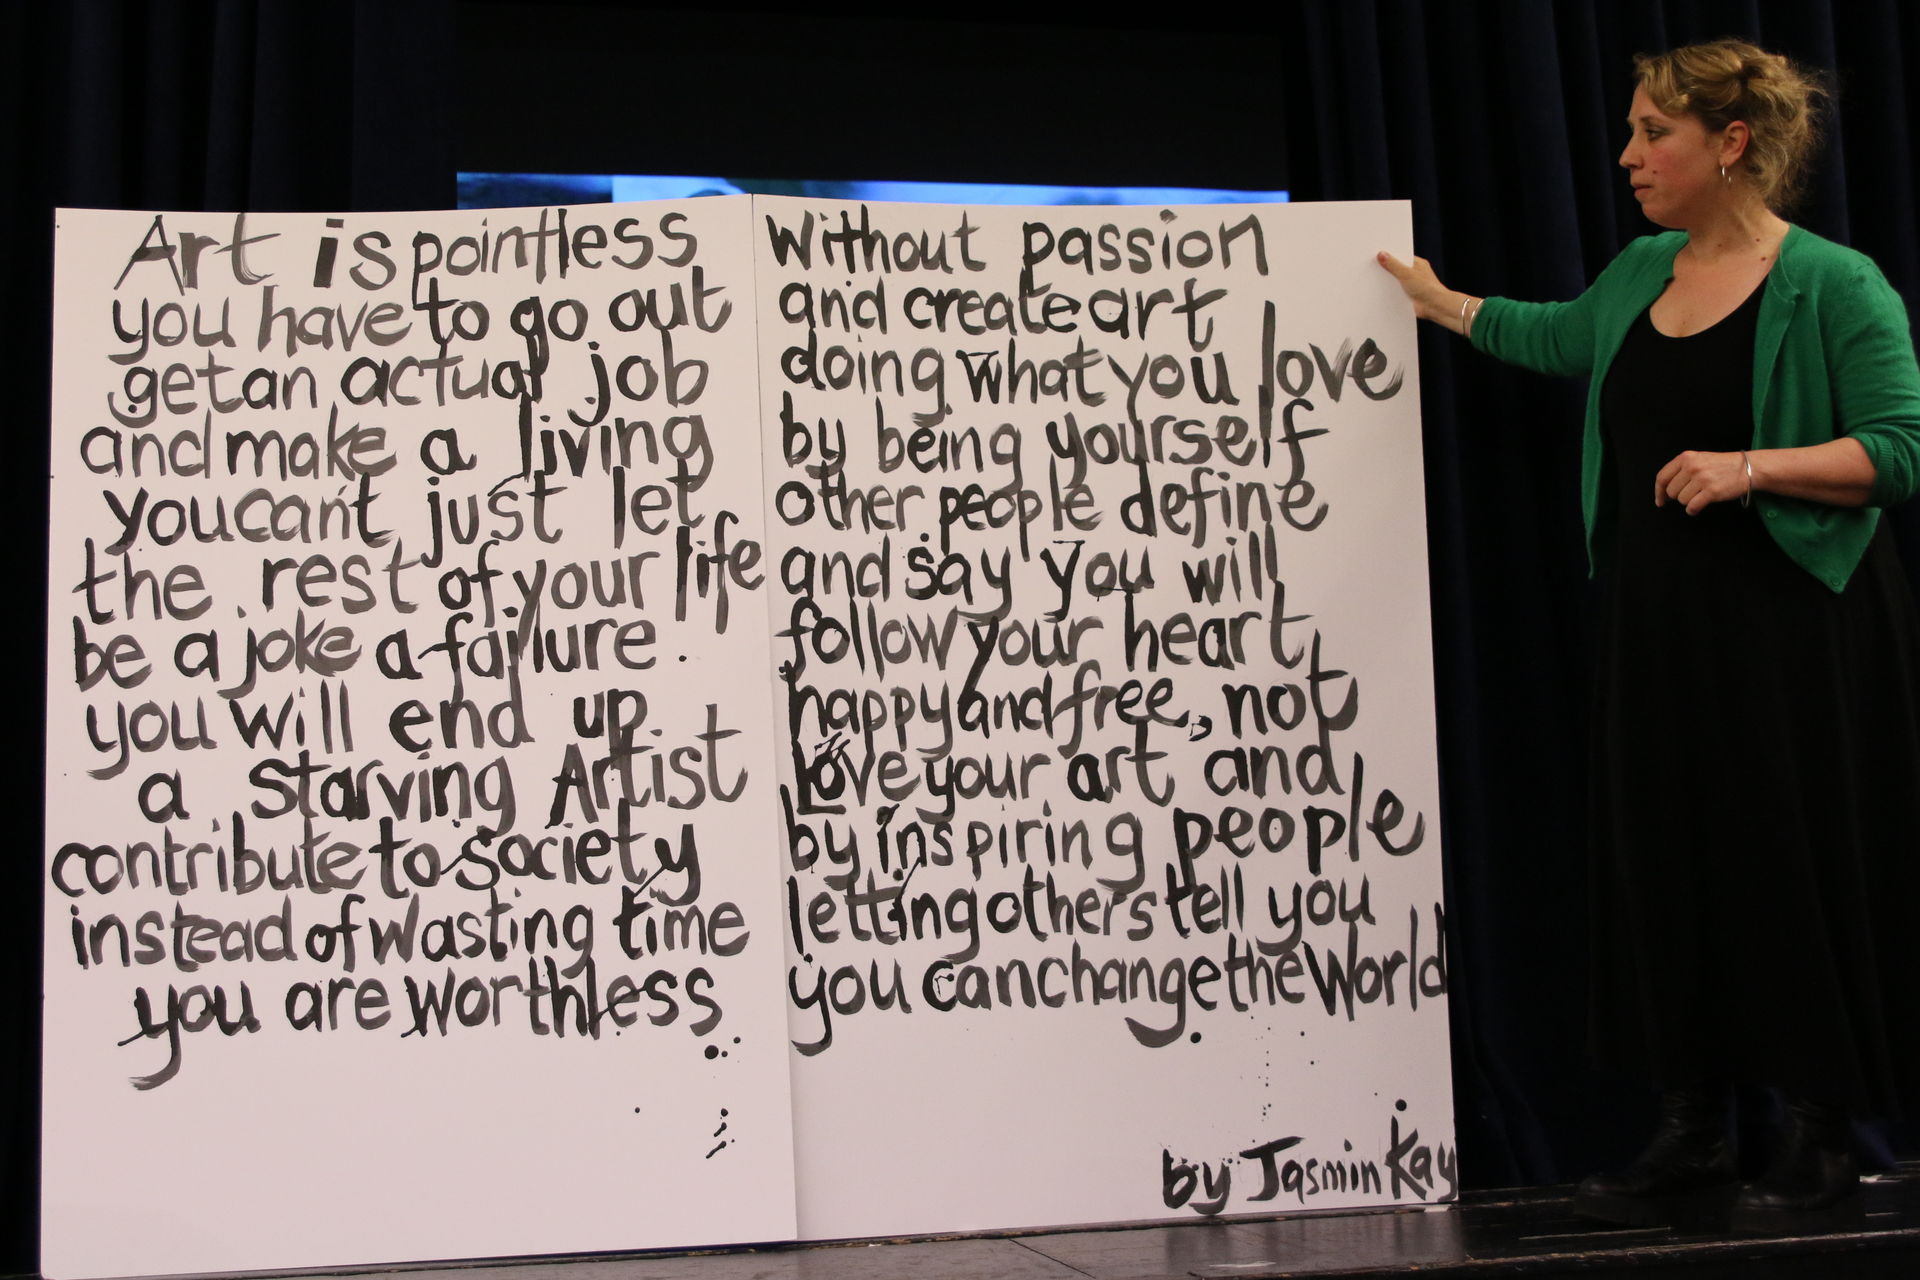 Art is pointless without passion
you have to go out and create art
get an actual job doing what you love
and make a living by being yourself
you can't just let other people define
the rest of your life and say you will
be a joke a failure. follow your heart,
you will end up happy and free, not
a starving Artist Love your art and
contribute to society by inspiring people
instead of wasting time letting others tell you
you are worthless you can change the World
by Jasmin Kay